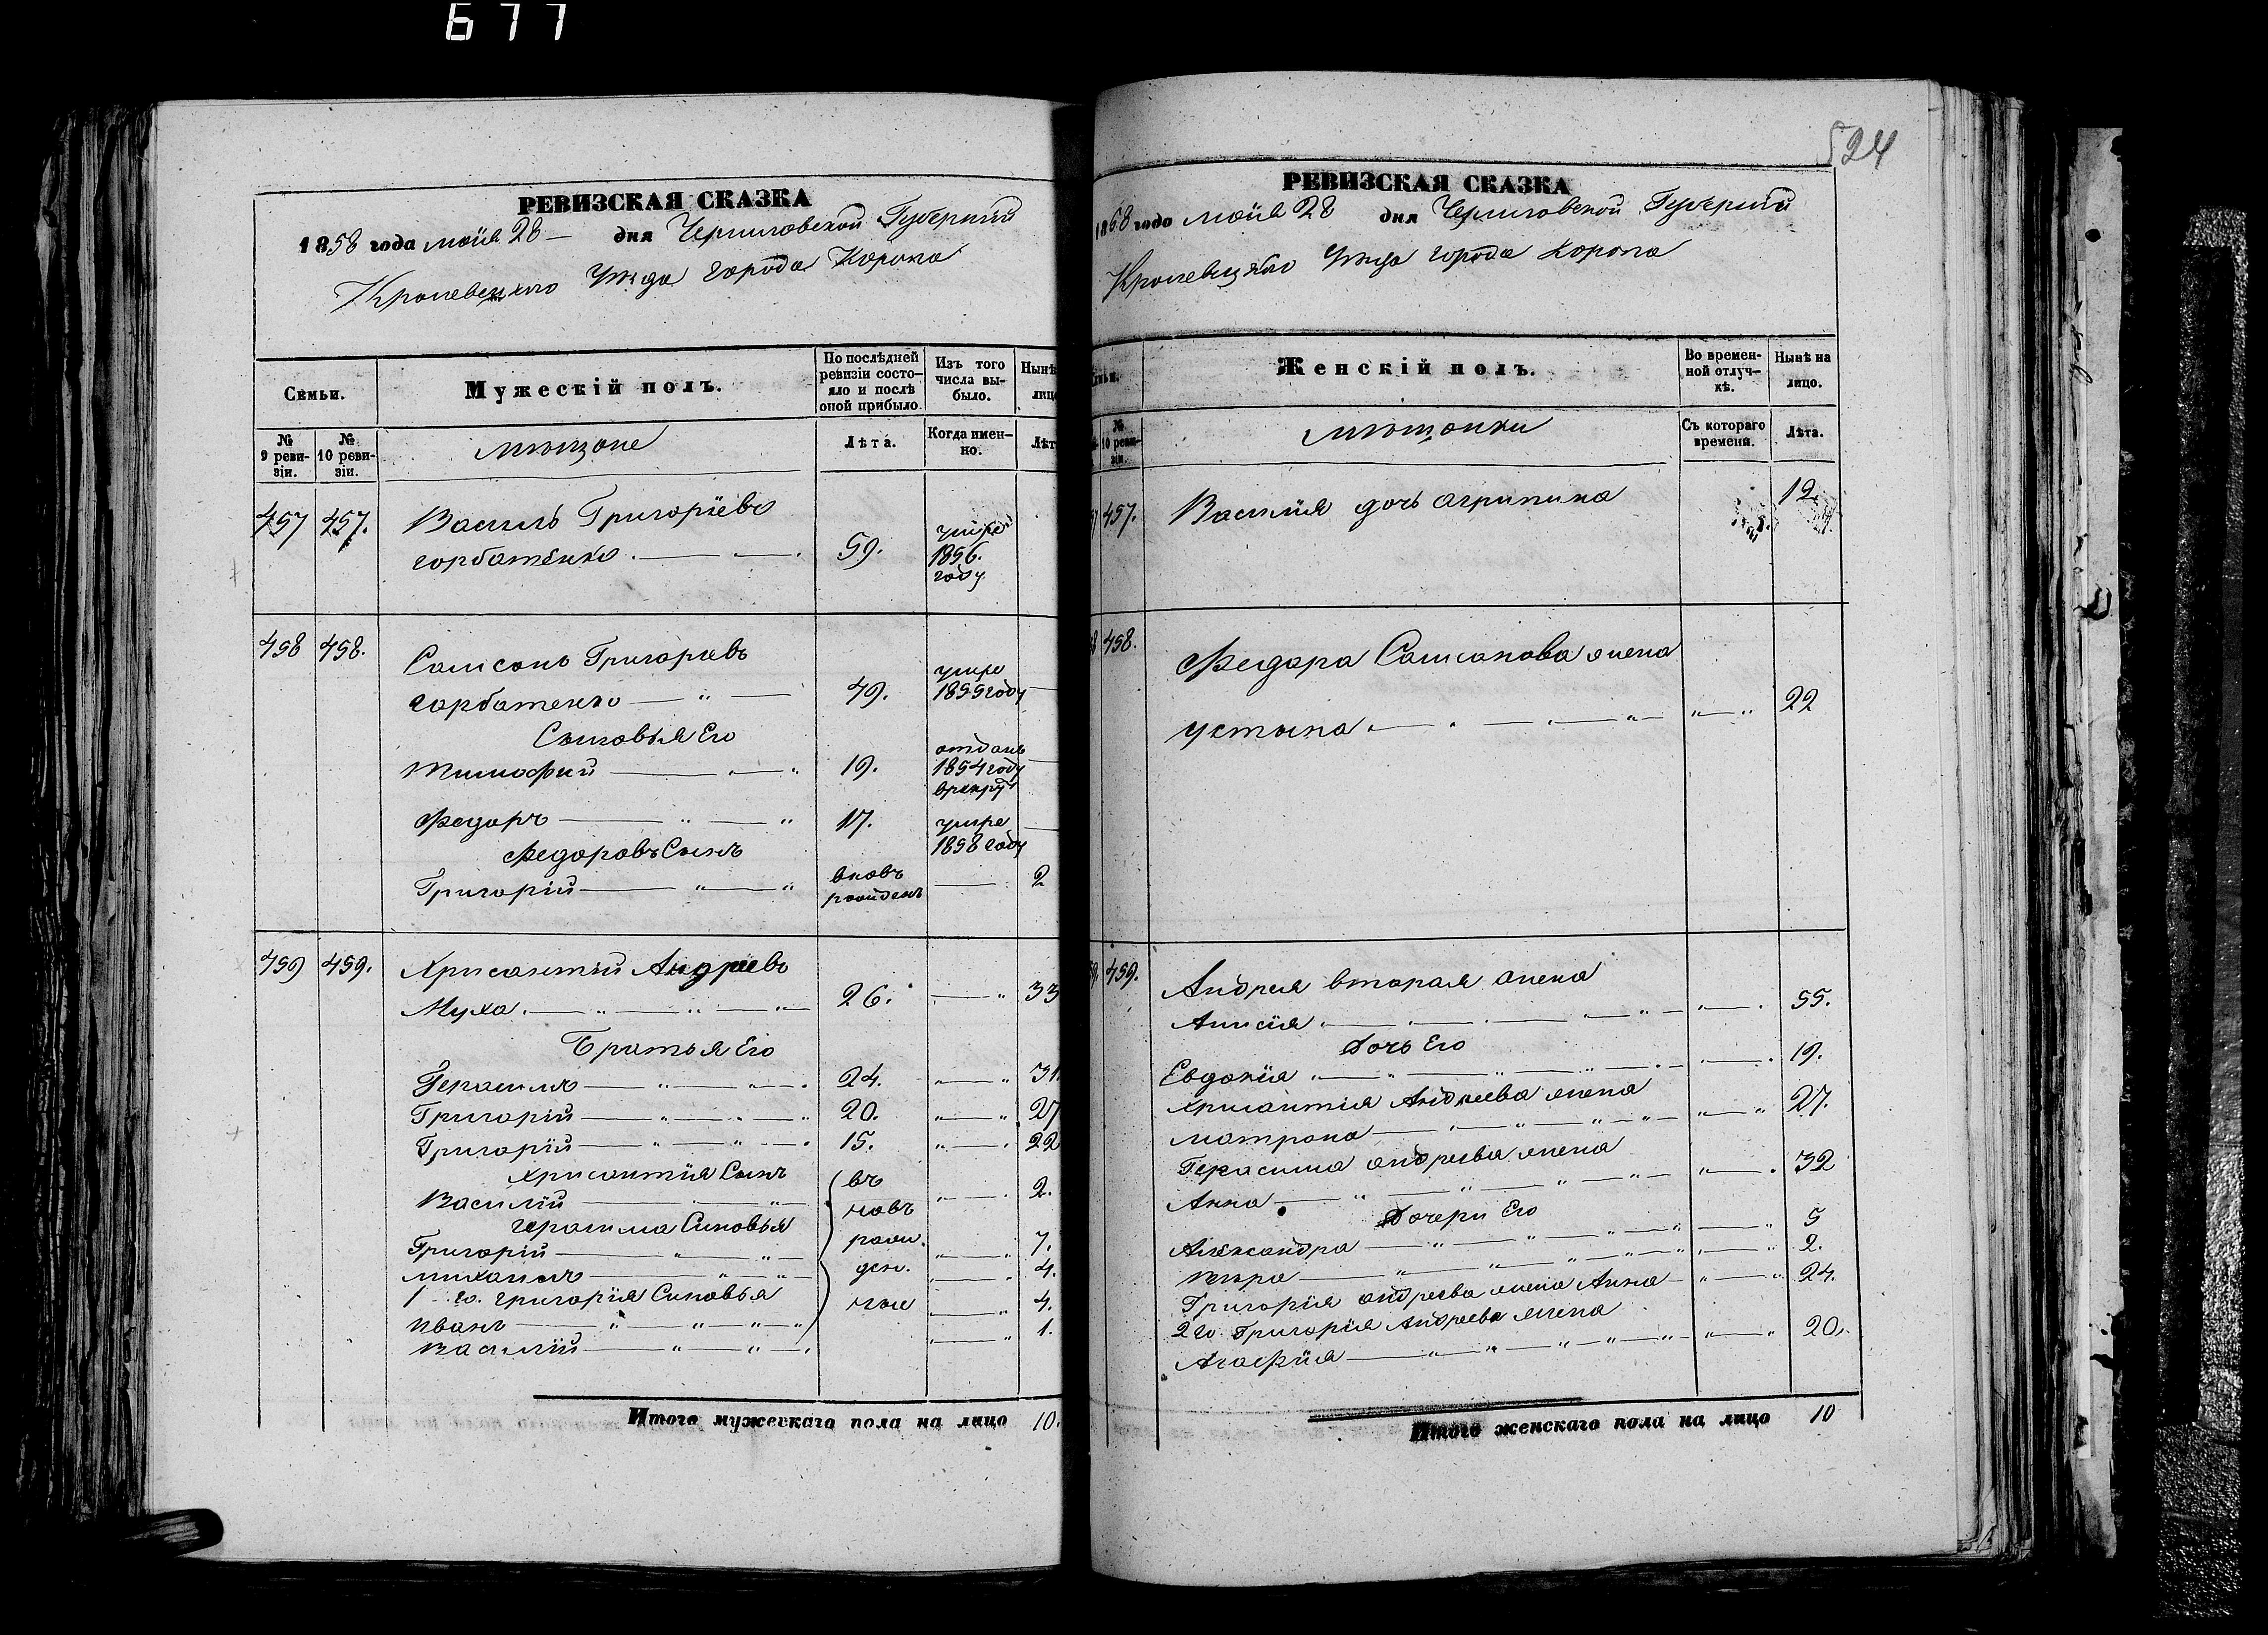 677
РЕВИЗСКАЯ СКАЗКА
1858 года маія 28 — дня Черниговской Губерніи
Кролевецкого Уѣзда города Коропа
Семьи.
Мужескій полъ.
По послѣдней ревизіи состо-
яло и послѣ
оной прибыло.
Изъ того
числа вы-
было.
Нынѣ
лиц
№
9 реви-
зіи.
№
10 реви-
зіи.
мѣщане
Лѣта.
Когда имен-
но.
Лѣт
457 457. Василь Григоріевъ
горбатенко 59. умре 1856. году
458 458. Самсонъ Григорьевъ
горбатенко 49. умре 1855 году
Сыновья Его
Тимофей 19. отданъ 1854 году врекру
Федоръ 17. умре 1858 году
Федоровъ Сынъ
Григорій вновъ рожденъ 2
459 459. Хрисантій Андреевъ
Муха 26. 33
Братья Его
Герасимъ 24. 31.
Григорій 20. 27
Григорій 15. 22
Хрисантія Сынъ
Василій 2.
Герасима Синовья
Григорій 7.
михаилъ 4.
1 го. григорія Синовья
иванъ 4.
Василій 1.
въ
новъ
рож.
ден.
ные
Итого мужескаго пола на лицо 10.
524
РЕВИЗСКАЯ СКАЗКА
1858 года маія 28 дня Черниговской Губерніи
Кролевецкого Уѣзда города Коропа
Женскій полъ.
Во времен-
ной отлуч-
кѣ.
Нынѣ на
лицо.
№
10 реви-
зіи.
мѣщанки
Съ котораго
времени.
Лѣта.
457. Василія дочь агрипина 12.
458. Федора Самсонова жена
устына 22
459. Андрея вторая жена
Анисія 55.
Дочь Его
Евдокія 19.
Хрисантія Андреева жена
матрона 27.
Герасима андреева жена
Анна 32
Дочери Его
Александра 5
2.
Григорія андреева жена Анна 24.
2 го. Григорія Андреева жена
Агафія 20.
Итого женскаго пола на лицо 10